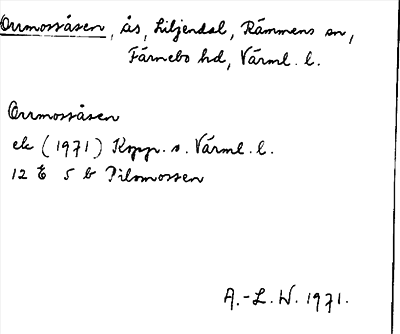 Orrmossåsen, ås, Liljendal, Rämmens sn,
Färnebo hd, Värml. l.
Orrmossåsen
ek (1971) Kopp. o. Värml. l.
12 E 5 b Pilomossen
A.-L. W. 1971.